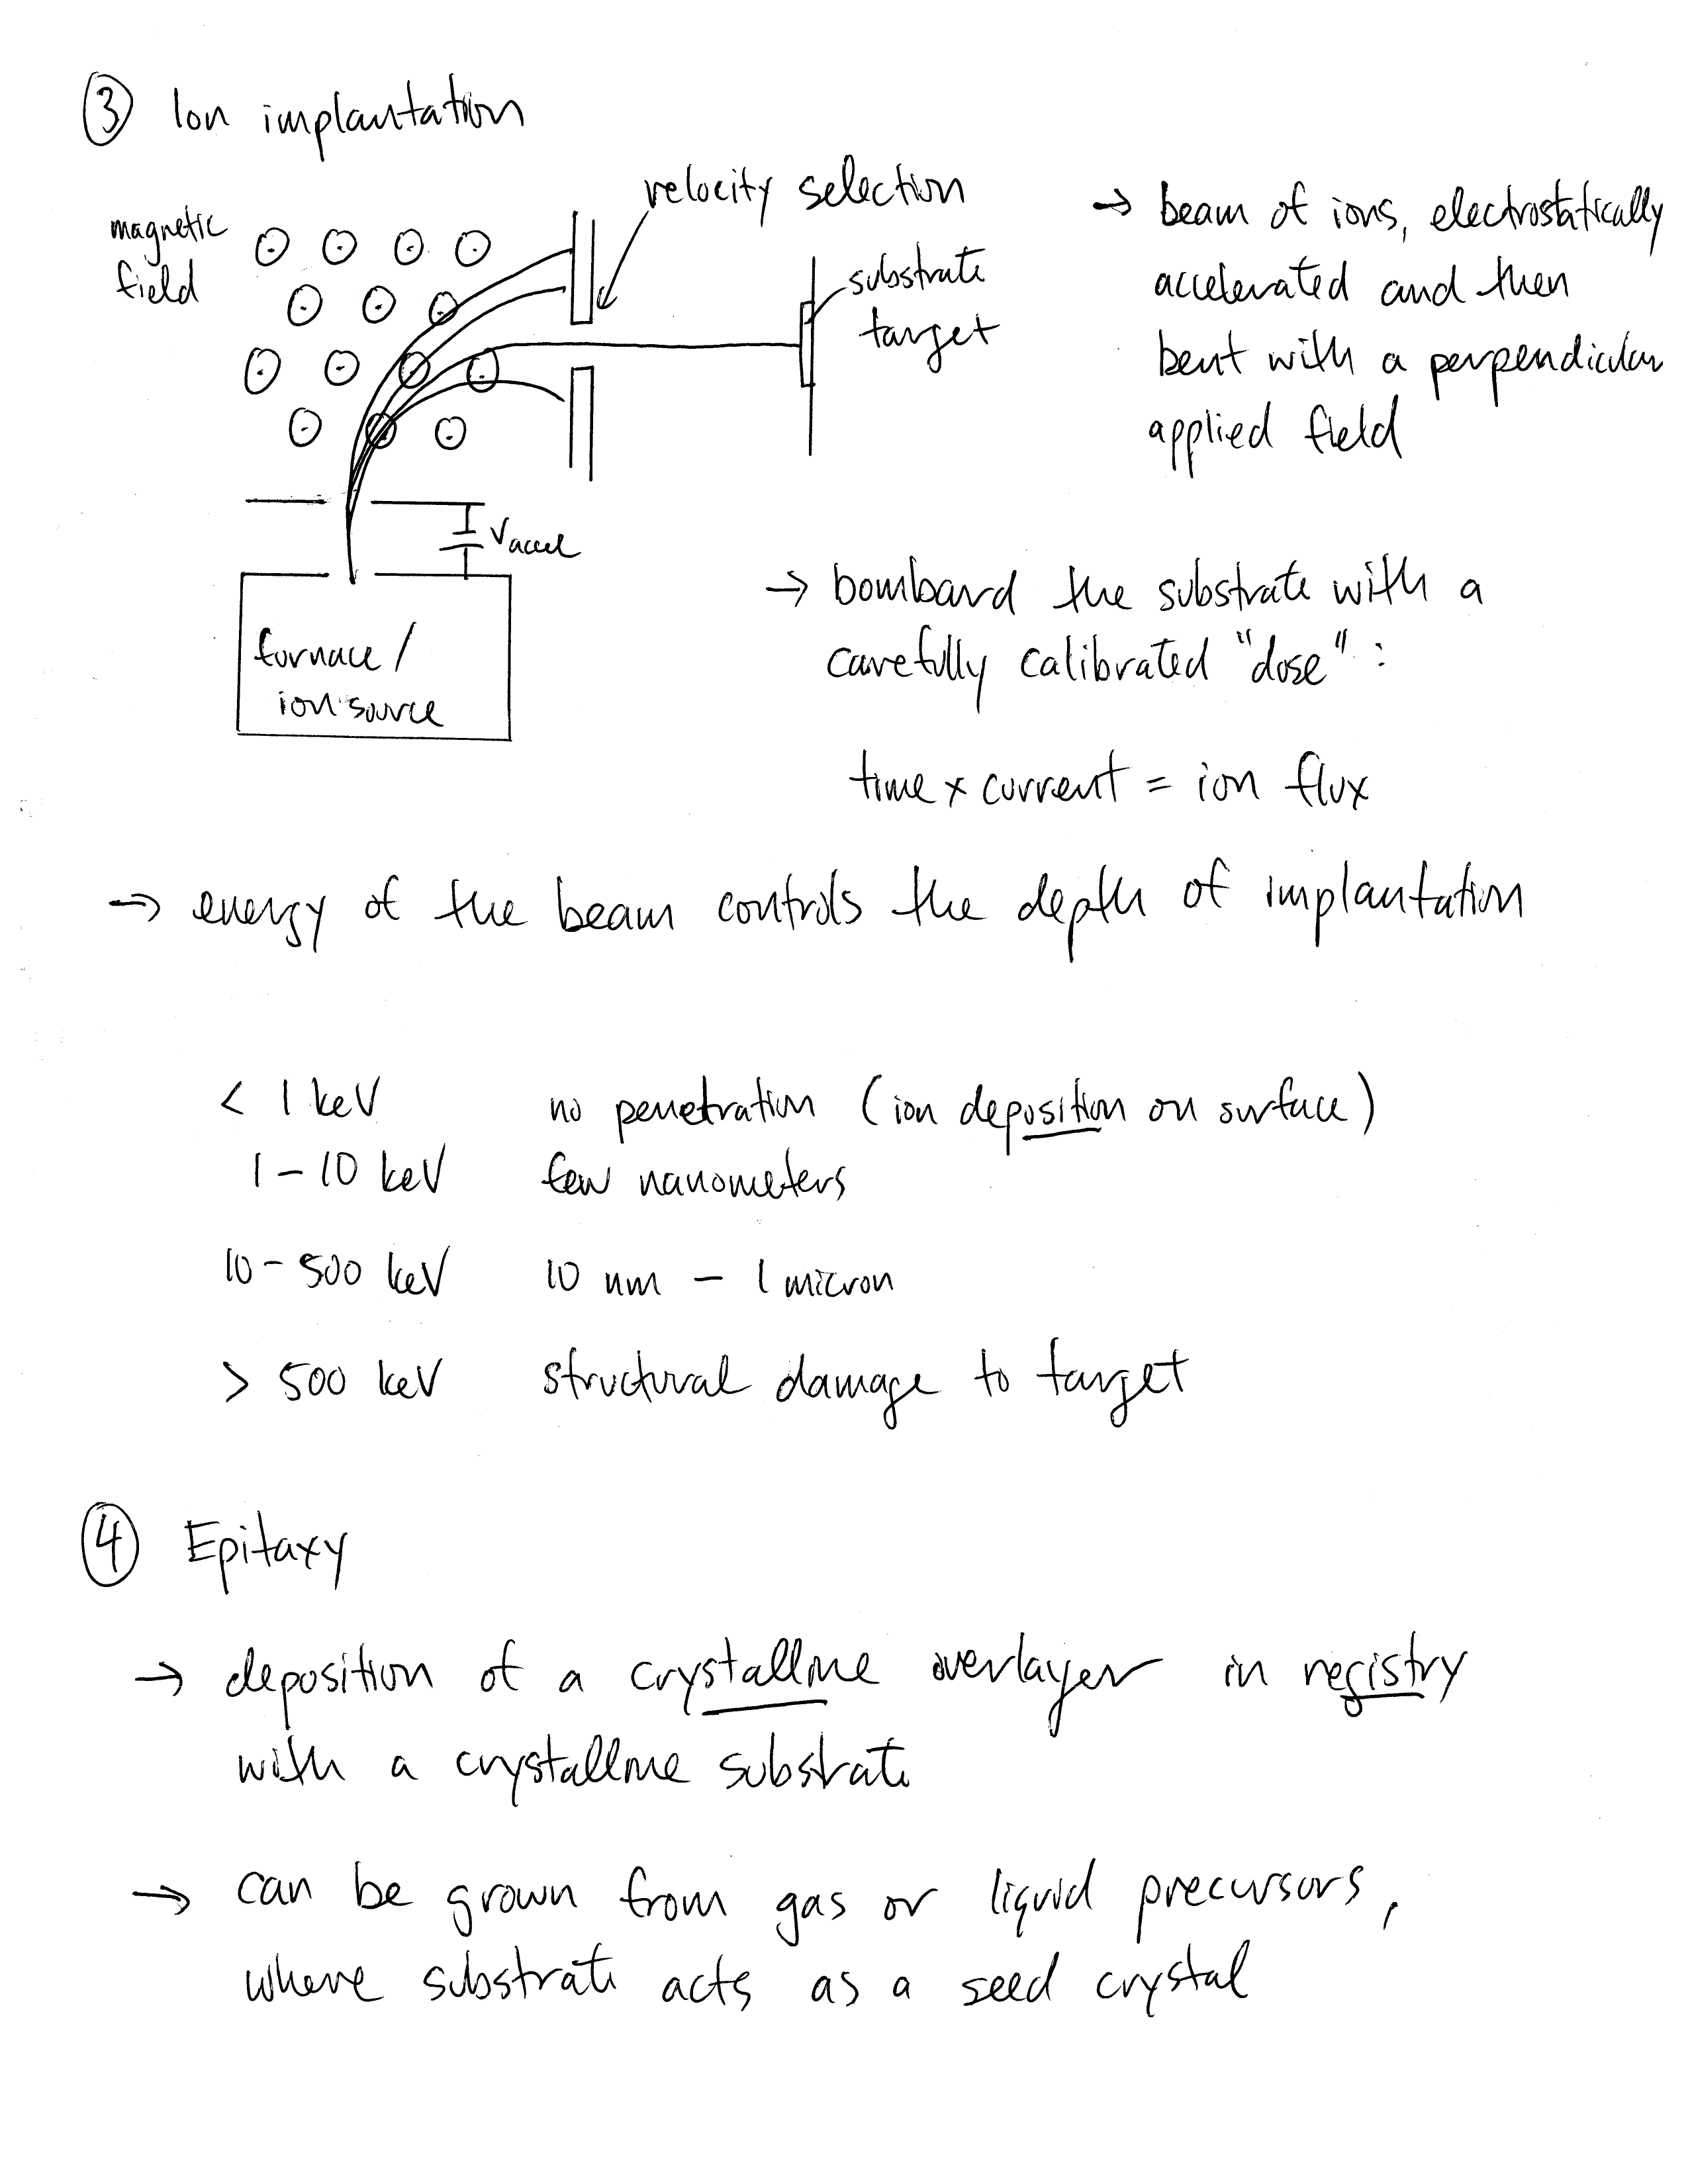 ③ Ion implantation
magnetic
field
velocity selection
substrate
target
→ beam of ions, electrostatically
accelerated and then
bent with a perpendicular
applied field
Vaccel
furnace/
ion source
→ bombard the substrate with a
carefully calibrated "dose":
time × current = ion flux
→ energy of the beam controls the depth of implantation
< 1 keV no penetration (ion deposition on surface)
1-10 keV few nanometers
10-500 keV 10 nm - 1 micron
> 500 keV structural damage to target
④ Epitaxy
→ deposition of a crystalline overlayer in registry
with a crystalline substrate
→ can be grown from gas or liquid precursors,
where substrate acts as a seed crystal